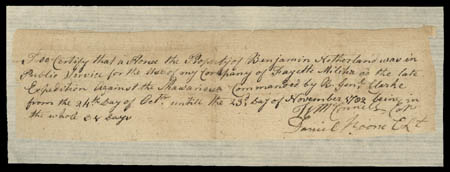 I do Certify that a Horse the Property of Benjamin Netherland was in
Public Service for the Use of my Company of Fayette Militia on the late
Expedition against the Shawanoes Commanded by Gen. Clarke
from the 24th Day of Octr. untill the 23d Day of November 1782 being in
the whole Days
Daniel Boone